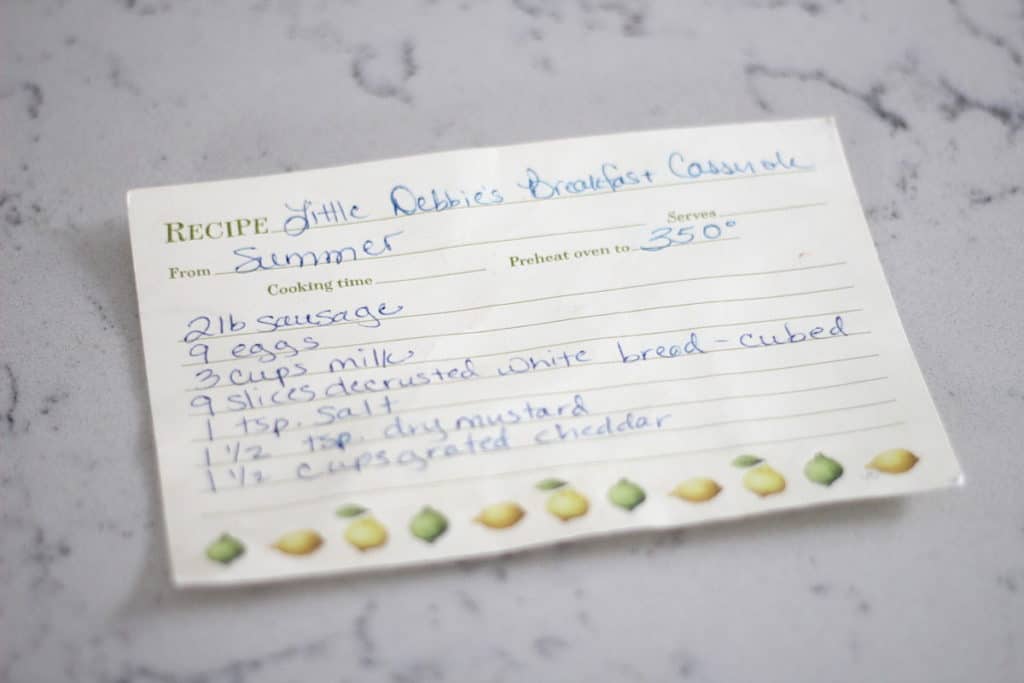 RECIPE Little Debbie's Breakfast Casserole
From Summer Serves
Cooking time Preheat oven to 350°
2 lb sausage
9 eggs
3 cups milk
9 slices decrusted white bread - cubed
1 tsp. salt
1 1/2 tsp. dry mustard
1 1/2 cups grated cheddar